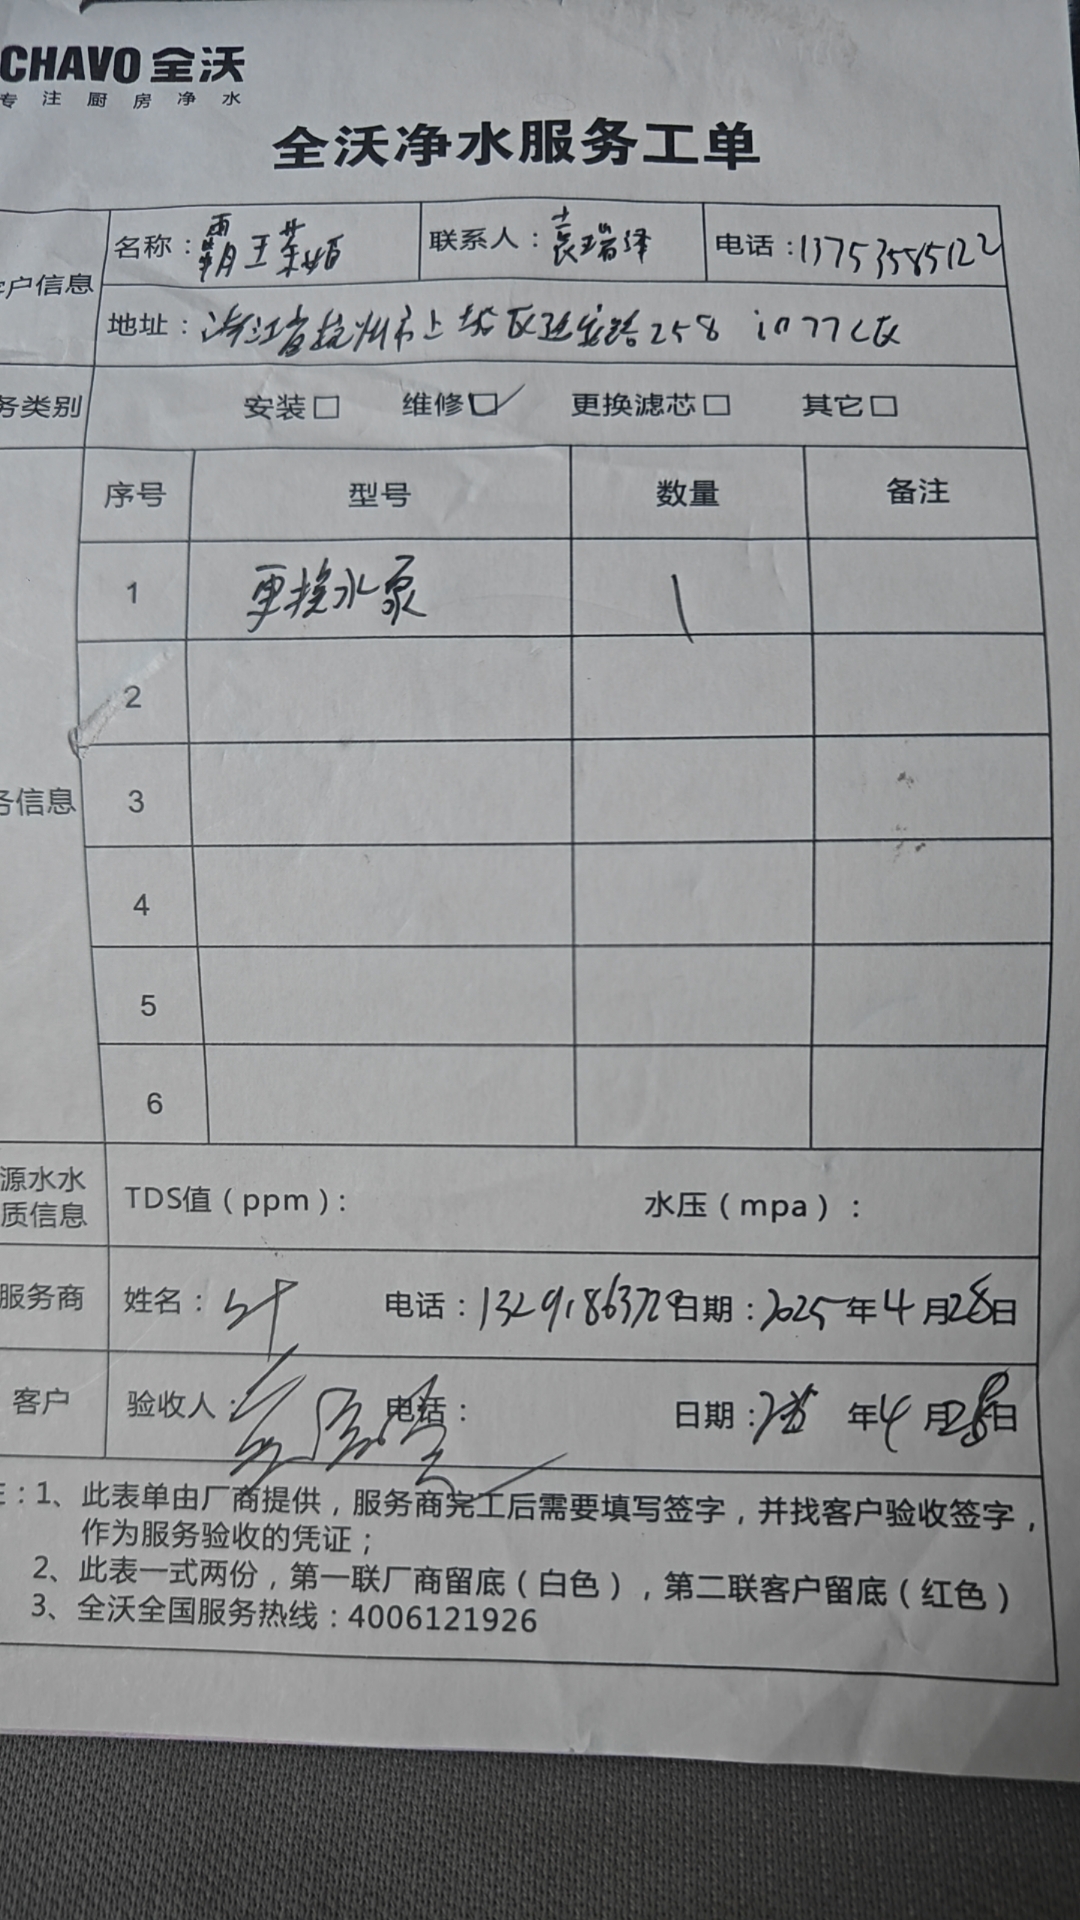 CHAVO 全沃
专注厨房净水
全沃净水服务工单
户信息
名称：霸王茶姬 联系人：袁瑞泽 电话：13753585122
地址：浙江省杭州市上城区延安路258 in77C区
务类别 安装□ 维修□✓ 更换滤芯□ 其它□
务信息
序号 型号 数量 备注
1 更换水泵 1
2
3
4
5
6
源水水质信息 TDS值（ppm）： 水压（mpa）：
服务商 姓名：叶 电话：13291863728 日期：2025年4月28日
客户 验收人： 电话： 日期：年4月28日
：1、此表单由厂商提供，服务商完工后需要填写签字，并找客户验收签字，
作为服务验收的凭证；
2、此表一式两份，第一联厂商留底（白色），第二联客户留底（红色）
3、全沃全国服务热线：4006121926